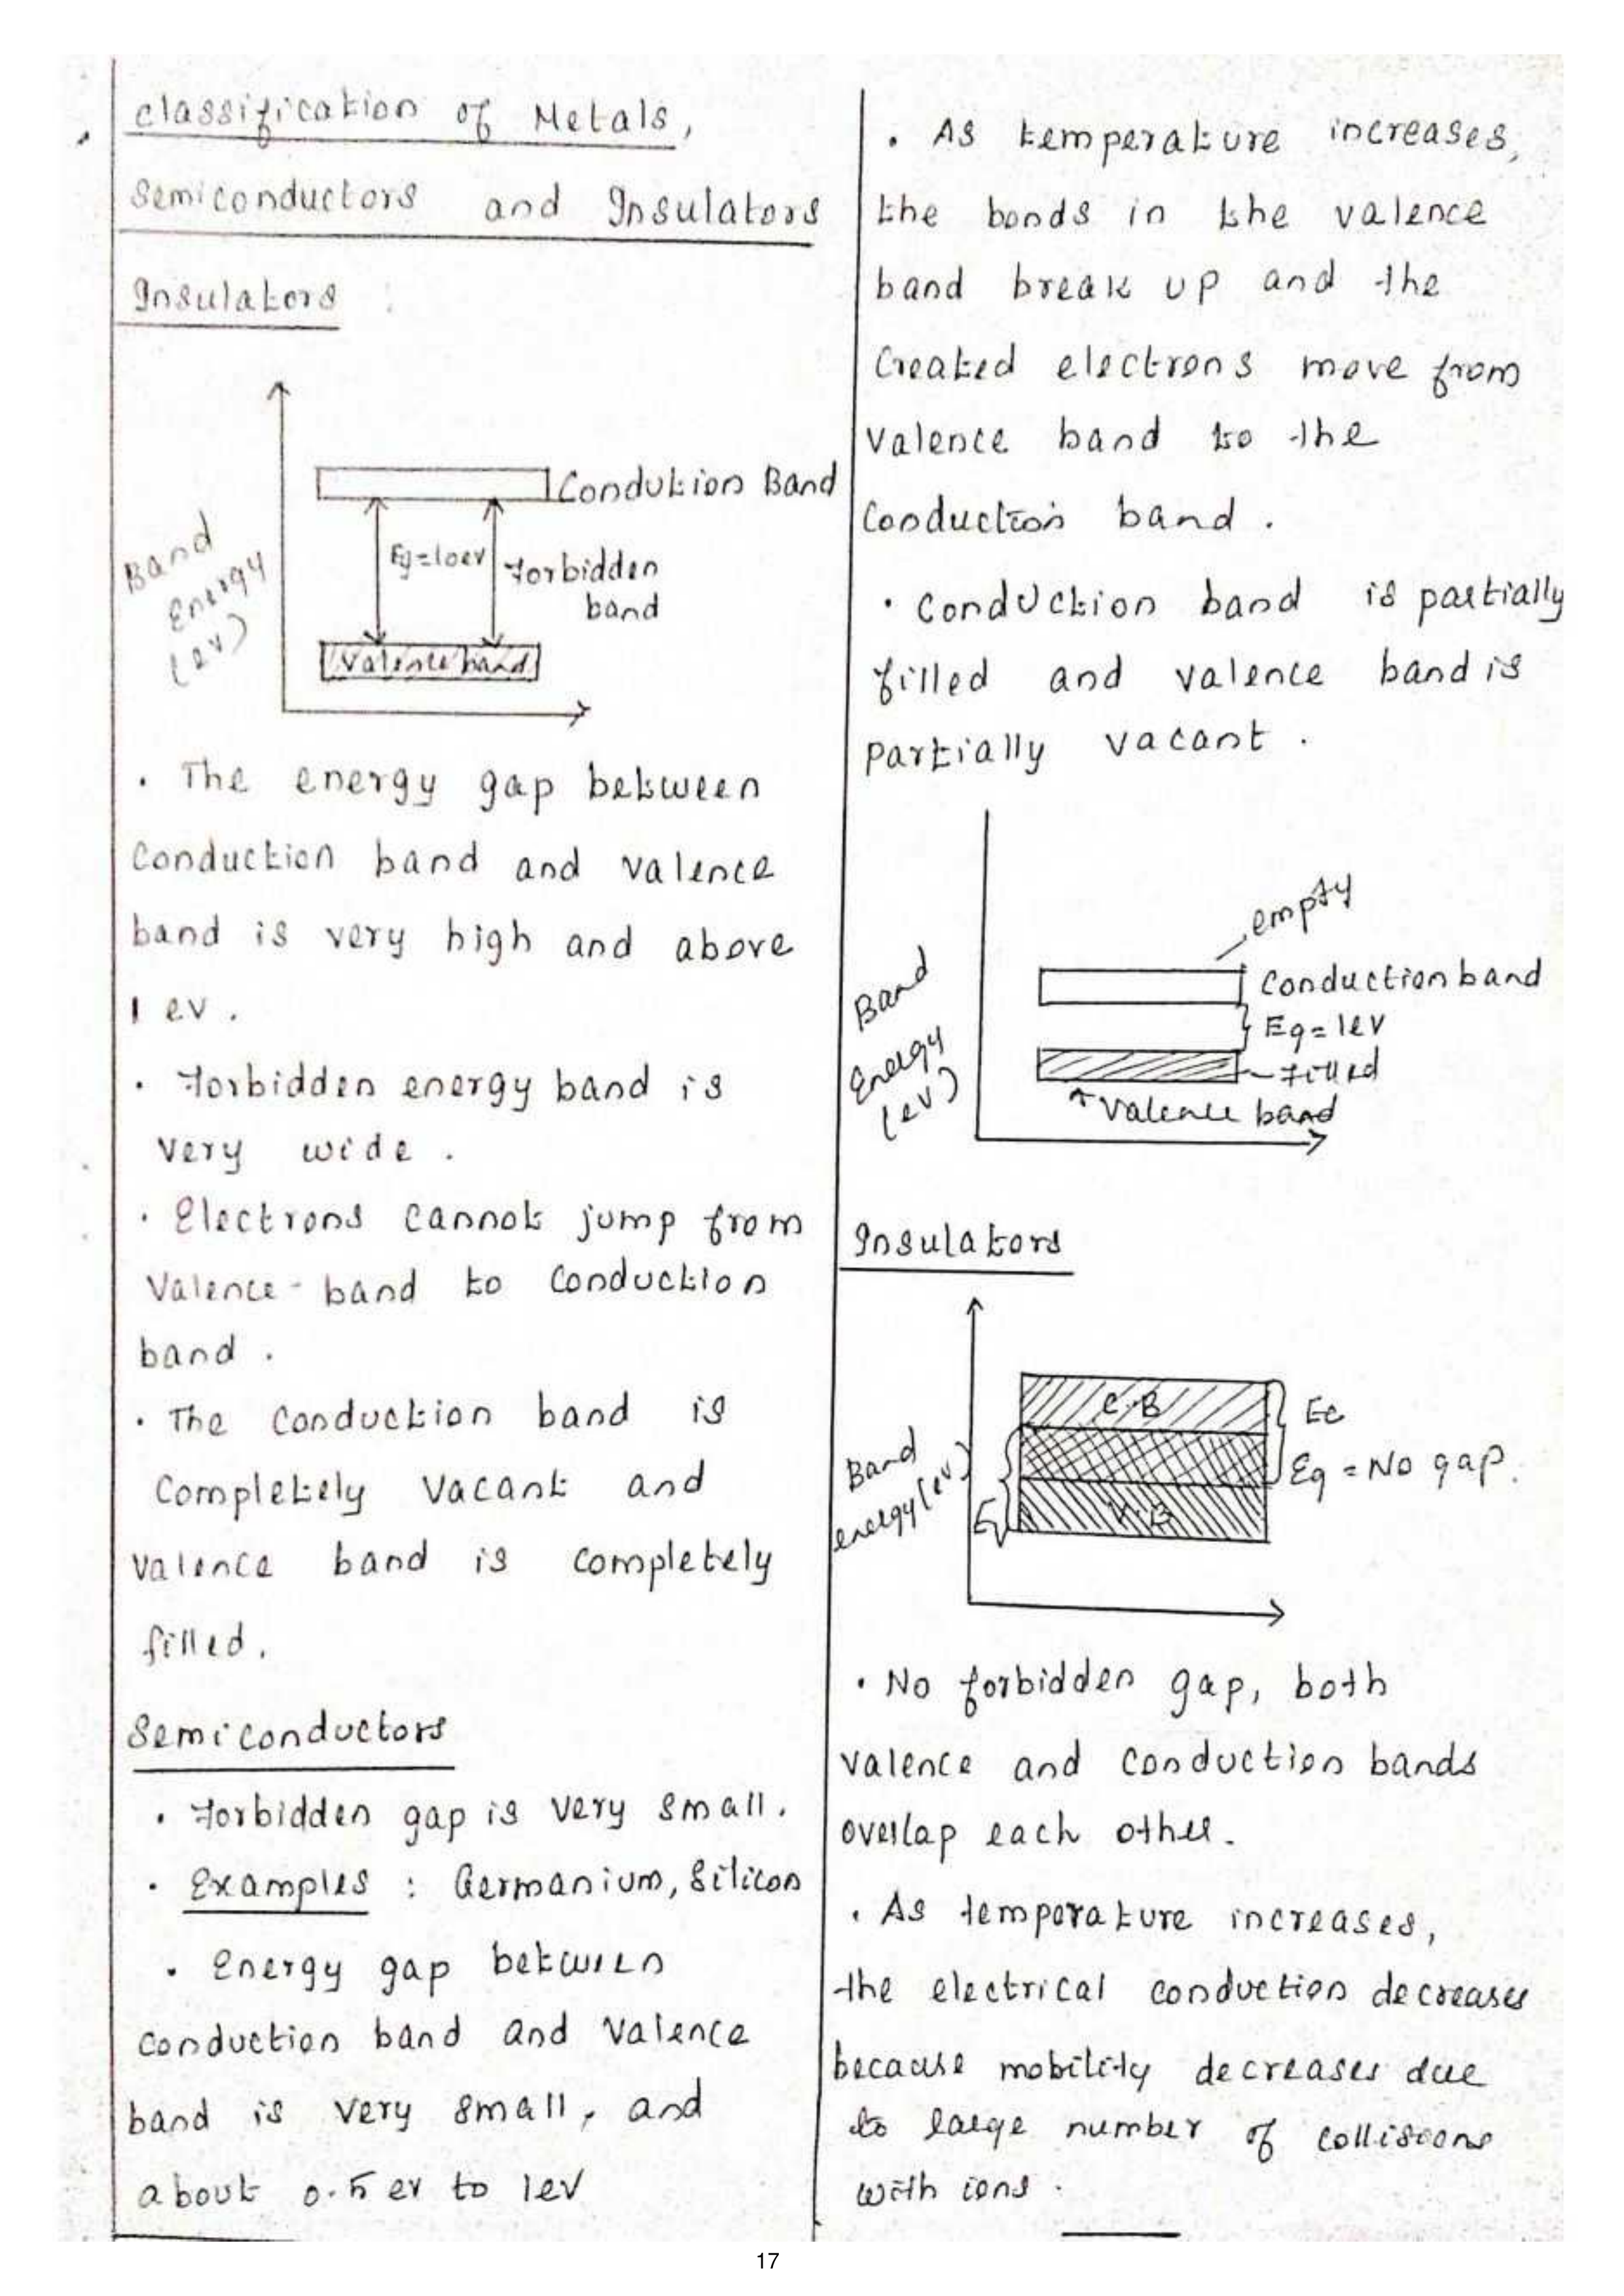 classification of Metals,
Semiconductors and Insulators
Insulators
Condution Band
Band
Energy
(ev)
Eg=10ev
Forbidden
band
Valence band
. The energy gap between
Conduction band and valence
band is very high and above
1 ev.
. Forbidden energy band is
very wide.
. Electrons cannot jump from
Valence-band to conduction
band.
. The conduction band is
Completely vacant and
valence band is completely
filled.
Semiconductors
. Forbidden gap is very small.
. Examples : Germanium, Silicon
. Energy gap between
conduction band and valence
band is very small, and
about 0.5 ev to 1ev
. As temperature increases,
the bonds in the valence
band break up and the
Created electrons move from
valence band to the
conduction band.
. Conduction band is partially
filled and valence band is
partially vacant.
empty
Band
Energy
(ev)
Conduction band
Eg=1eV
Filled
Valence band
Insulators
Band
energy(ev)
C.B
Ec
Eg = No gap.
V.B
Ev
. No forbidden gap, both
valence and conduction bands
overlap each other.
. As temperature increases,
the electrical conduction decreases
because mobility decreases due
to large number of collisions
with ions.
17